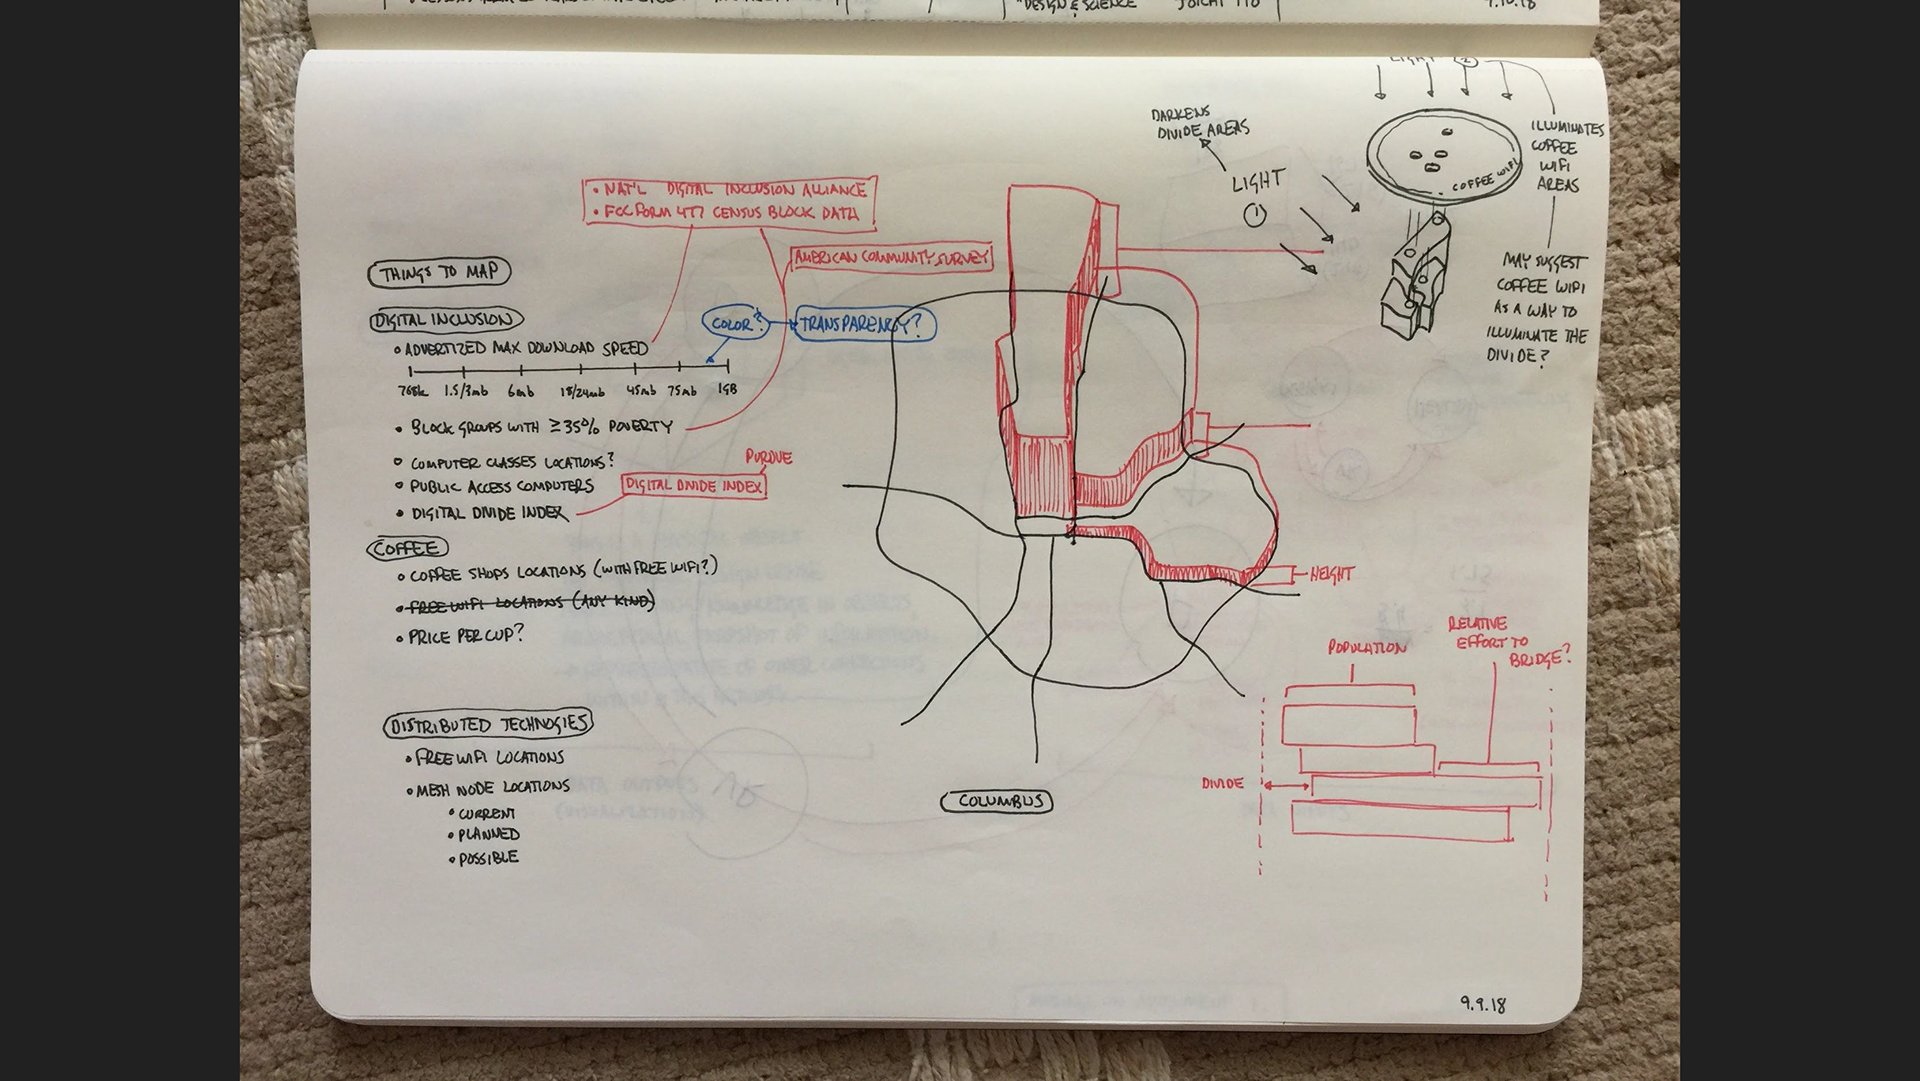 "DESIGN & SCIENCE JOICHI ITO 9.10.18
LIGHT 2
DARKENS
DIVIDE AREAS
LIGHT
1
COFFEE WIFI
ILLUMINATES
COFFEE
WIFI
AREAS
MAY SUGGEST
COFFEE WIFI
AS A WAY TO
ILLUMINATE THE
DIVIDE?
• NAT'L DIGITAL INCLUSION ALLIANCE
• FCC FORM 477 CENSUS BLOCK DATA
AMERICAN COMMUNITY SURVEY
THINGS TO MAP
DIGITAL INCLUSION
COLOR?
TRANSPARENCY?
• ADVERTIZED MAX DOWNLOAD SPEED
768k 1.5/3mb 6mb 18/24mb 45mb 75mb 1GB
• BLOCK GROUPS WITH ≥35% POVERTY
• COMPUTER CLASSES LOCATIONS?
• PUBLIC ACCESS COMPUTERS
PURDUE
DIGITAL DIVIDE INDEX
• DIGITAL DIVIDE INDEX
COFFEE
• COFFEE SHOPS LOCATIONS (WITH FREE WIFI?)
• FREE WIFI LOCATIONS (ANY KIND)
• PRICE PER CUP?
DISTRIBUTED TECHNOGIES
• FREE WIFI LOCATIONS
• MESH NODE LOCATIONS
• CURRENT
• PLANNED
• POSSIBLE
COLUMBUS
HEIGHT
POPULATION
RELATIVE
EFFORT TO
BRIDGE?
DIVIDE
9.9.18